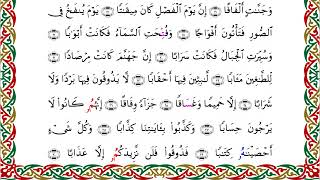 وَجَنَّٰتٍ أَلْفَافًا ۝ إِنَّ يَوْمَ ٱلْفَصْلِ كَانَ مِيقَٰتًا ۝ يَوْمَ يُنفَخُ فِي
ٱلصُّورِ فَتَأْتُونَ أَفْوَاجًا ۝ وَفُتِحَتِ ٱلسَّمَآءُ فَكَانَتْ أَبْوَٰبًا ۝
وَسُيِّرَتِ ٱلْجِبَالُ فَكَانَتْ سَرَابًا ۝ إِنَّ جَهَنَّمَ كَانَتْ مِرْصَادًا ۝
لِّلطَّٰغِينَ مَـَٔابًا ۝ لَّٰبِثِينَ فِيهَآ أَحْقَابًا ۝ لَّا يَذُوقُونَ فِيهَا بَرْدًا وَلَا
شَرَابًا ۝ إِلَّا حَمِيمًا وَغَسَّاقًا ۝ جَزَآءً وِفَاقًا ۝ إِنَّهُمْ كَانُوا۟ لَا
يَرْجُونَ حِسَابًا ۝ وَكَذَّبُوا۟ بِـَٔايَٰتِنَا كِذَّابًا ۝ وَكُلَّ شَىْءٍ
أَحْصَيْنَٰهُ كِتَٰبًا ۝ فَذُوقُوا۟ فَلَن نَّزِيدَكُمْ إِلَّا عَذَابًا ۝